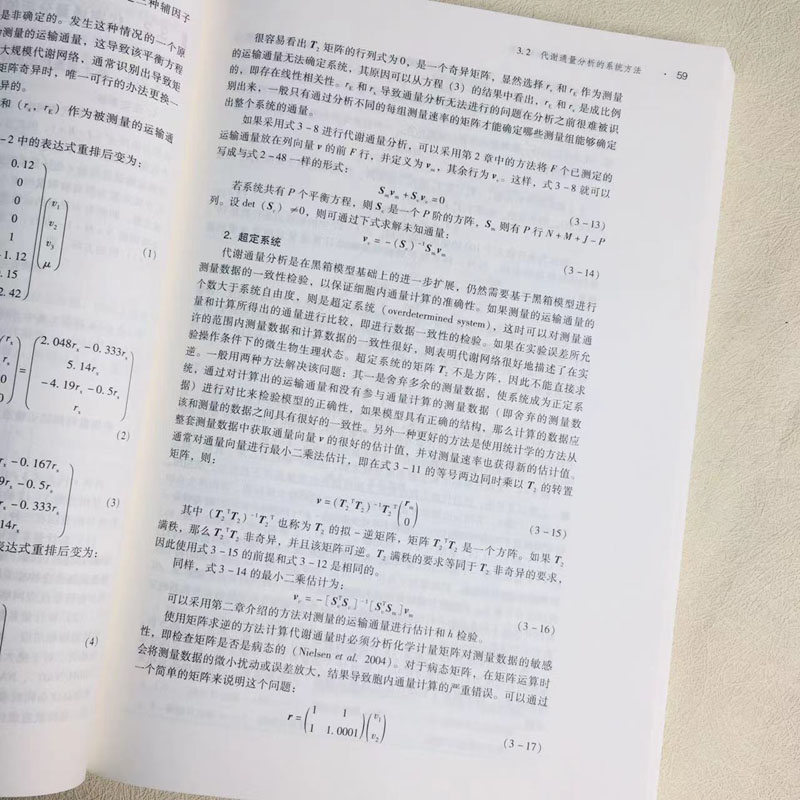 二种辅因子
是非确定的。发生这种情况的一个原
测量的运输通量，这导致该平衡方程
大规模代谢网络，通常识别出导致矩
矩阵奇异时，唯一可行的办法更换一
异的。
和（rs，rE）作为被测量的运输通
-2 中的表达式重排后变为：
0.12
0
0
0
1
-1.12
.15
2.42
v1
v2
v3
μ
(1)
rs
rs
0
=
2.048rs-0.333rs
5.14rs
-4.19rs-0.5rs
rs
(2)
rs-0.167rs
9rs-0.5rs
rs-0.333rs
14rs
(3)
表达式重排后变为：
(4)
3.2 代谢通量分析的系统方法 · 59
很容易看出 T2 矩阵的行列式为 0，是一个奇异矩阵，显然选择 rs 和 rE 作为测量
的运输通量无法确定系统，其原因可以从方程（3）的结果中看出，rE 和 rs 是成比例
的，即存在线性相关性。rE 和 rs 导致通量分析无法进行的问题在分析之前很难被识
别出来，一般只有通过分析不同的每组测量速率的矩阵才能确定哪些测量组能够确定
出整个系统的通量。
如果采用式 3-8 进行代谢通量分析，可以采用第 2 章中的方法将 F 个已测定的
运输通量放在列向量 v 的前 F 行，并定义为 vm，其余行为 vc。这样，式 3-8 就可以
写成与式 2-48 一样的形式：
Smvm+Scvc=0 (3-13)
若系统共有 P 个平衡方程，则 Sc 是一个 P 阶的方阵，Sm 则有 P 行 N+M+J-P
列。设 det（Sc）≠0，则可通过下式求解未知通量：
vc=-(Sc)⁻¹Smvm (3-14)
2. 超定系统
代谢通量分析是在黑箱模型基础上的进一步扩展，仍然需要基于黑箱模型进行
测量数据的一致性检验，以保证细胞内通量计算的准确性。如果测量的运输通量的
个数大于系统自由度，则是超定系统（overdetermined system），这时可以对测量通
量和计算所得出的通量进行比较，即进行数据一致性的检验。如果在实验误差所允
许的范围内测量数据和计算数据的一致性很好，则表明代谢网络很好地描述了在实
验操作条件下的微生物生理状态。超定系统的矩阵 T2 不是方阵，因此不能直接求
逆。一般用两种方法解决该问题：其一是舍弃多余的测量数据，使系统成为正定系
统，通过对计算出的运输通量和没有参与通量计算的测量数据（即舍弃的测量数
据）进行对比来检验模型的正确性，如果模型具有正确的结构，那么计算的数据应
该和测量的数据之间具有很好的一致性。另外一种更好的方法是使用统计学的方法从
整套测量数据中获取通量向量 v 的很好的估计值，并对测量速率也获得新的估计值。
通常对通量向量进行最小二乘法估计，即在式 3-11 的等号两边同时乘以 T2 的转置
矩阵，则：
v=(T2ᵀT2)⁻¹T2ᵀ(rm 0) (3-15)
其中 (T2ᵀT2)⁻¹T2ᵀ 也称为 T2 的拟-逆矩阵，矩阵 T2ᵀT2 是一个方阵。如果 T2
满秩，那么 T2ᵀT2 非奇异，并且该矩阵可逆。T2 满秩的要求等同于 T2 非奇异的要求，
因此使用式 3-15 的前提和式 3-12 是相同的。
同样，式 3-14 的最小二乘估计为：
vc=-[ScᵀSc]⁻¹[ScᵀSm]vm (3-16)
可以采用第二章介绍的方法对测量的运输通量进行估计和 h 检验。
使用矩阵求逆的方法计算代谢通量时必须分析化学计量矩阵对测量数据的敏感
性，即检查矩阵是否是病态的（Nielsen et al. 2004）。对于病态矩阵，在矩阵运算时
会将测量数据的微小扰动或误差放大，结果导致胞内通量计算的严重错误。可以通过
一个简单的矩阵来说明这个问题：
r=(1 1
1 1.0001)(v1
v2) (3-17)